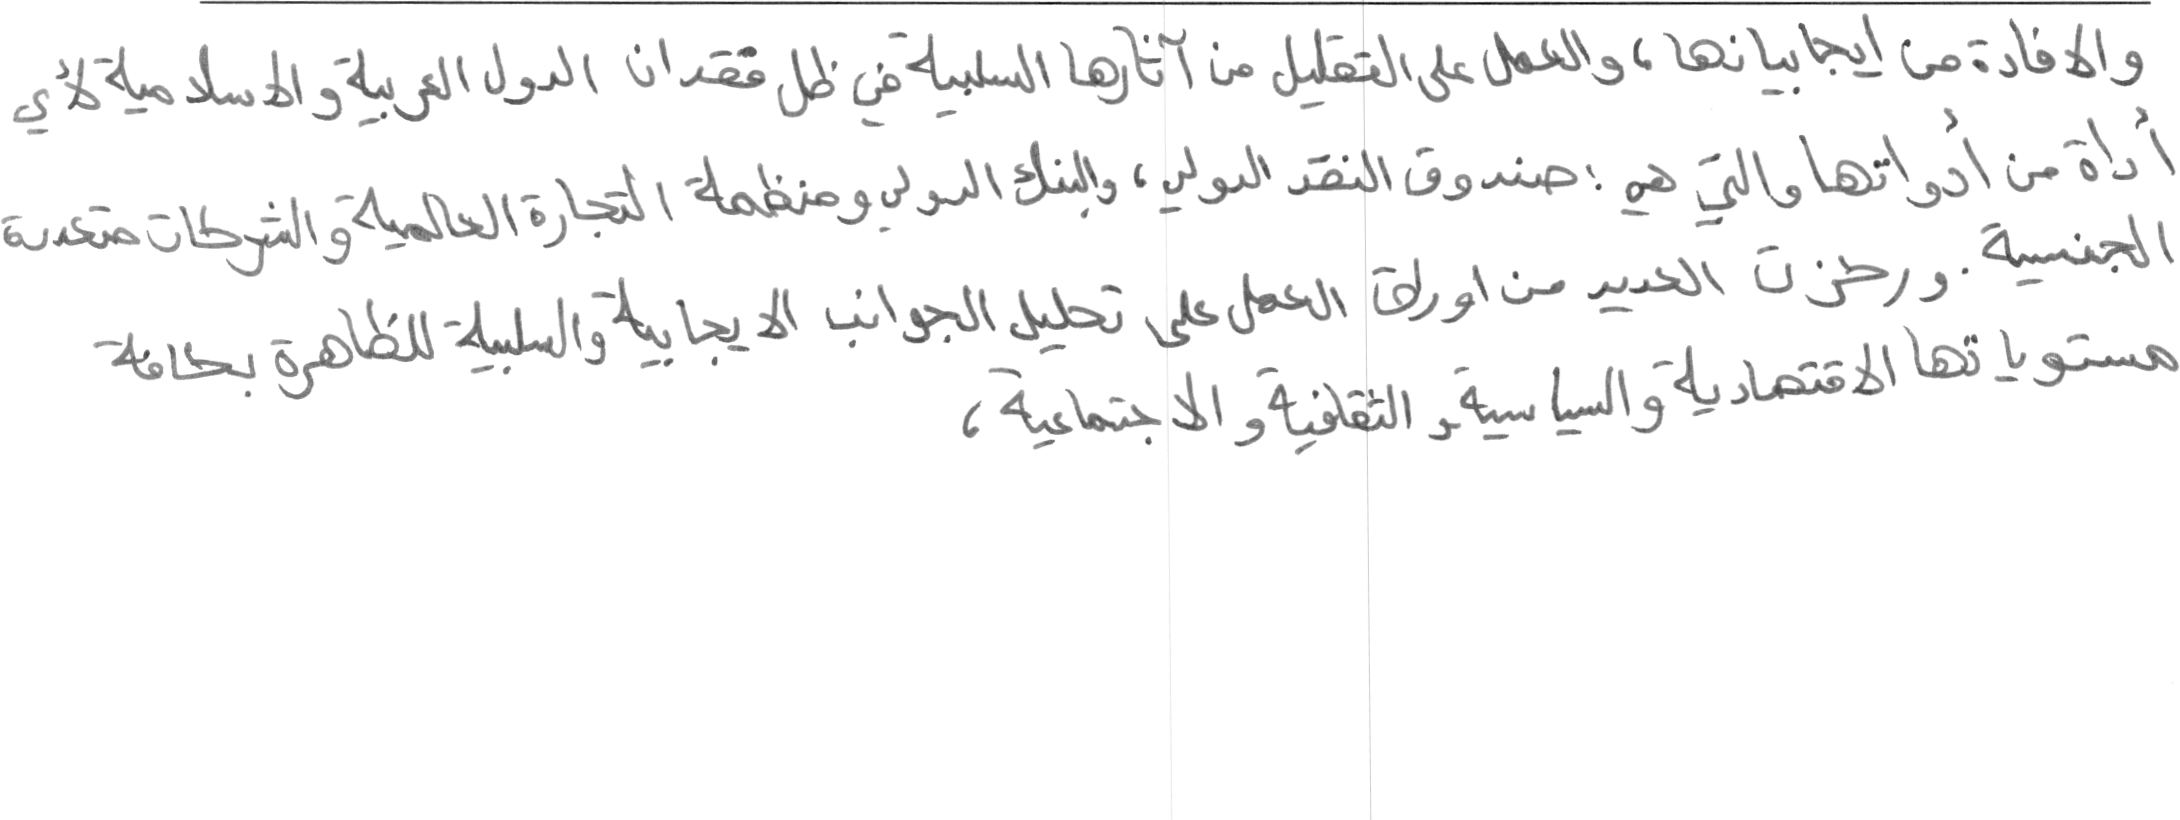 والافادة من ايجابياتها، والعمل على التقليل من آثارها السلبية في ظل فقدان الدول العربية والاسلامية لأي
أداة من أدواتها والتي هي: صندوق النقد الدولي، والبنك الدولي ومنظمة التجارة العالمية والشركات متعددة
الجنسية. وركزت العديد من اوراق العمل على تحليل الجوانب الايجابية والسلبية للظاهرة بكافة
مستوياتها الاقتصادية والسياسية والثقافية والاجتماعية،